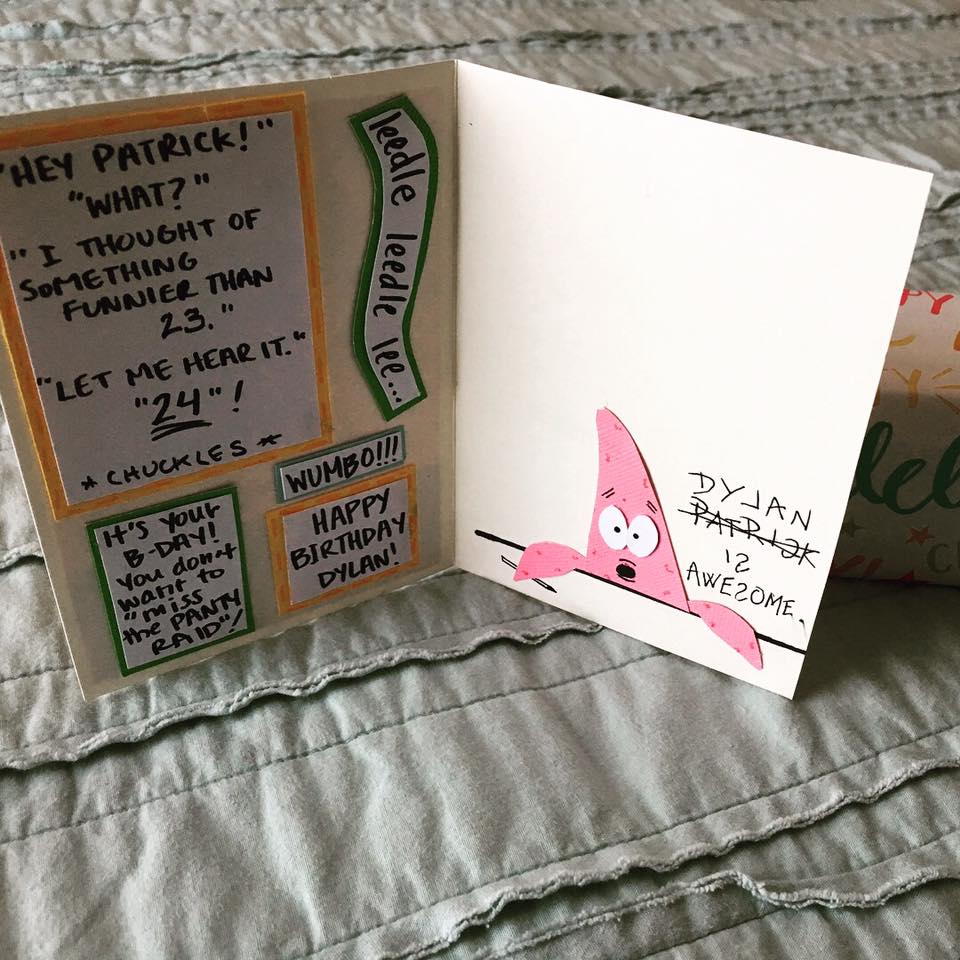 "HEY PATRICK!"
"WHAT?"
"I THOUGHT OF
SOMETHING
FUNNIER THAN
23."
"LET ME HEAR IT."
"24"!
*CHUCKLES*
leedle leedle lee...
WUMBO!!!
IT'S YOUR
B-DAY!
You don't
want to
"miss
the PANTY
RAID"!
HAPPY
BIRTHDAY
DYLAN!
DYLAN
PATRICK
IS
AWESOME.